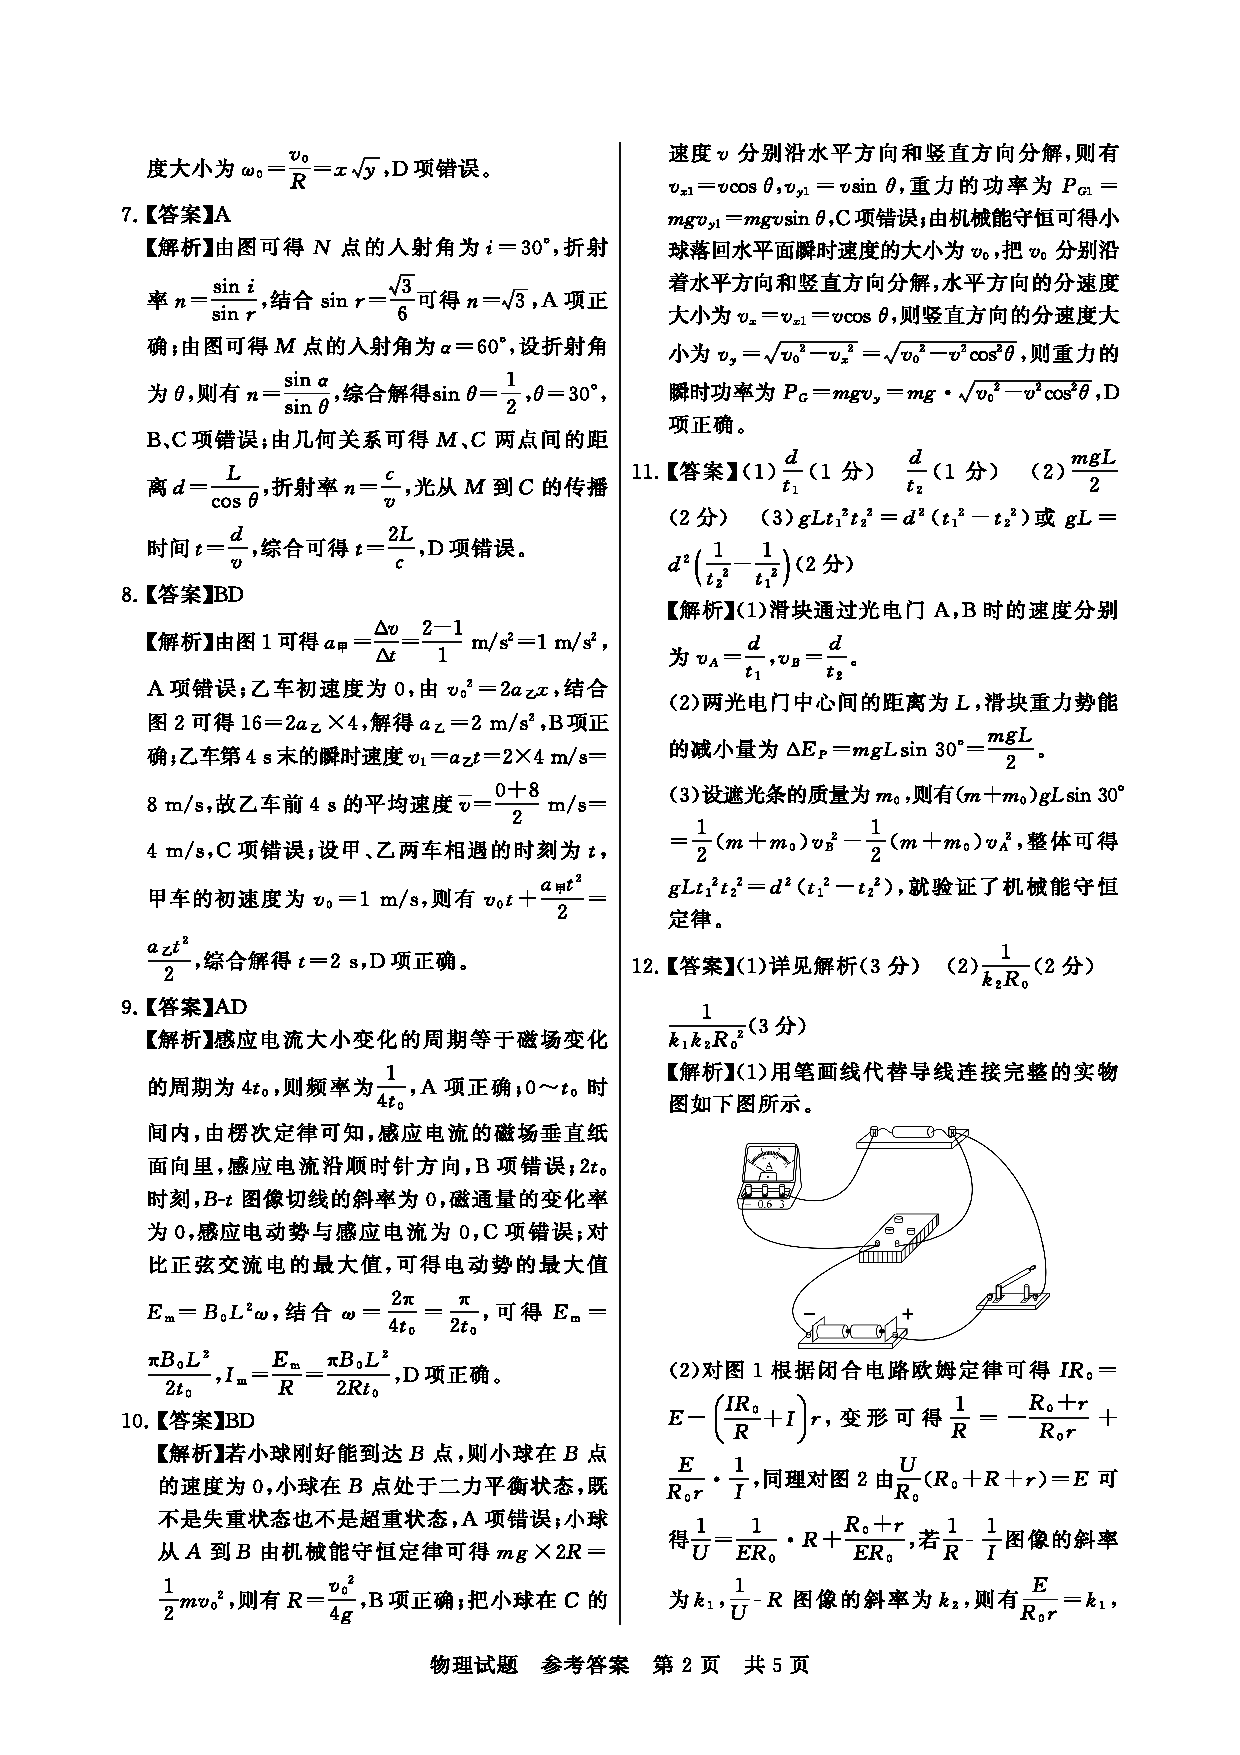 度大小为 ω₀=v₀/R=x√y,D项错误。
7.【答案】A
【解析】由图可得 N 点的入射角为 i=30°,折射
率 n=sin i/sin r,结合 sin r=√3/6可得 n=√3,A 项正
确;由图可得 M 点的入射角为 α=60°,设折射角
为 θ,则有 n=sin α/sin θ,综合解得sin θ=1/2,θ=30°,
B、C 项错误;由几何关系可得 M、C 两点间的距
离 d=L/cos θ,折射率 n=c/v,光从 M 到 C 的传播
时间 t=d/v,综合可得 t=2L/c,D 项错误。
8.【答案】BD
【解析】由图 1 可得 a甲=Δv/Δt=(2-1)/1 m/s²=1 m/s²,
A 项错误;乙车初速度为 0,由 v₀²=2a乙x,结合
图 2 可得 16=2a乙×4,解得 a乙=2 m/s²,B项正
确;乙车第 4 s 末的瞬时速度 v₁=a乙t=2×4 m/s=
8 m/s,故乙车前 4 s 的平均速度 v̄=(0+8)/2 m/s=
4 m/s,C 项错误;设甲、乙两车相遇的时刻为 t,
甲车的初速度为 v₀=1 m/s,则有 v₀t+a甲t²/2=
a乙t²/2,综合解得 t=2 s,D 项正确。
9.【答案】AD
【解析】感应电流大小变化的周期等于磁场变化
的周期为 4t₀,则频率为1/4t₀,A 项正确;0～t₀ 时
间内,由楞次定律可知,感应电流的磁场垂直纸
面向里,感应电流沿顺时针方向,B 项错误;2t₀
时刻,B-t 图像切线的斜率为 0,磁通量的变化率
为 0,感应电动势与感应电流为 0,C 项错误;对
比正弦交流电的最大值,可得电动势的最大值
Eₘ=B₀L²ω,结合 ω=2π/4t₀=π/2t₀,可得 Eₘ=
πB₀L²/2t₀,Iₘ=Eₘ/R=πB₀L²/2Rt₀,D项正确。
10.【答案】BD
【解析】若小球刚好能到达 B 点,则小球在 B 点
的速度为 0,小球在 B 点处于二力平衡状态,既
不是失重状态也不是超重状态,A 项错误;小球
从 A 到 B 由机械能守恒定律可得 mg×2R=
1/2mv₀²,则有 R=v₀²/4g,B项正确;把小球在 C 的
速度 v 分别沿水平方向和竖直方向分解,则有
vₓ₁=vcos θ,v_y1=vsin θ,重力的功率为 P_G1=
mgv_y1=mgvsin θ,C 项错误;由机械能守恒可得小
球落回水平面瞬时速度的大小为 v₀,把 v₀ 分别沿
着水平方向和竖直方向分解,水平方向的分速度
大小为 vₓ=vₓ₁=vcos θ,则竖直方向的分速度大
小为 v_y=√(v₀²-vₓ²)=√(v₀²-v²cos²θ),则重力的
瞬时功率为 P_G=mgv_y=mg·√(v₀²-v²cos²θ),D
项正确。
11.【答案】(1)d/t₁(1 分) d/t₂(1 分) (2)mgL/2
(2 分) (3)gLt₁²t₂²=d²(t₁²-t₂²)或 gL=
d²(1/t₂²-1/t₁²)(2分)
【解析】(1)滑块通过光电门 A,B 时的速度分别
为 v_A=d/t₁,v_B=d/t₂。
(2)两光电门中心间的距离为 L,滑块重力势能
的减小量为 ΔE_P=mgLsin 30°=mgL/2。
(3)设遮光条的质量为 m₀,则有(m+m₀)gLsin 30°
=1/2(m+m₀)v_B²-1/2(m+m₀)v_A²,整体可得
gLt₁²t₂²=d²(t₁²-t₂²),就验证了机械能守恒
定律。
12.【答案】(1)详见解析(3 分) (2)1/k₂R₀(2 分)
1/k₁k₂R₀²(3 分)
【解析】(1)用笔画线代替导线连接完整的实物
图如下图所示。
A
- 0.6 3
- +
(2)对图 1 根据闭合电路欧姆定律可得 IR₀=
E-(IR₀/R+I)r,变形可得 1/R=-(R₀+r)/R₀r+
E/R₀r·1/I,同理对图 2 由U/R₀(R₀+R+r)=E 可
得1/U=1/ER₀·R+(R₀+r)/ER₀,若1/R-1/I图像的斜率
为 k₁,1/U-R 图像的斜率为 k₂,则有E/R₀r=k₁,
物理试题 参考答案 第 2 页 共 5 页